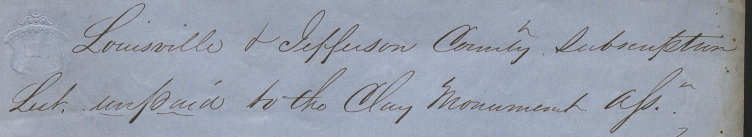 Louisville & Jefferson County Subscription
List. unpaid to the Clay Monument Ass.n